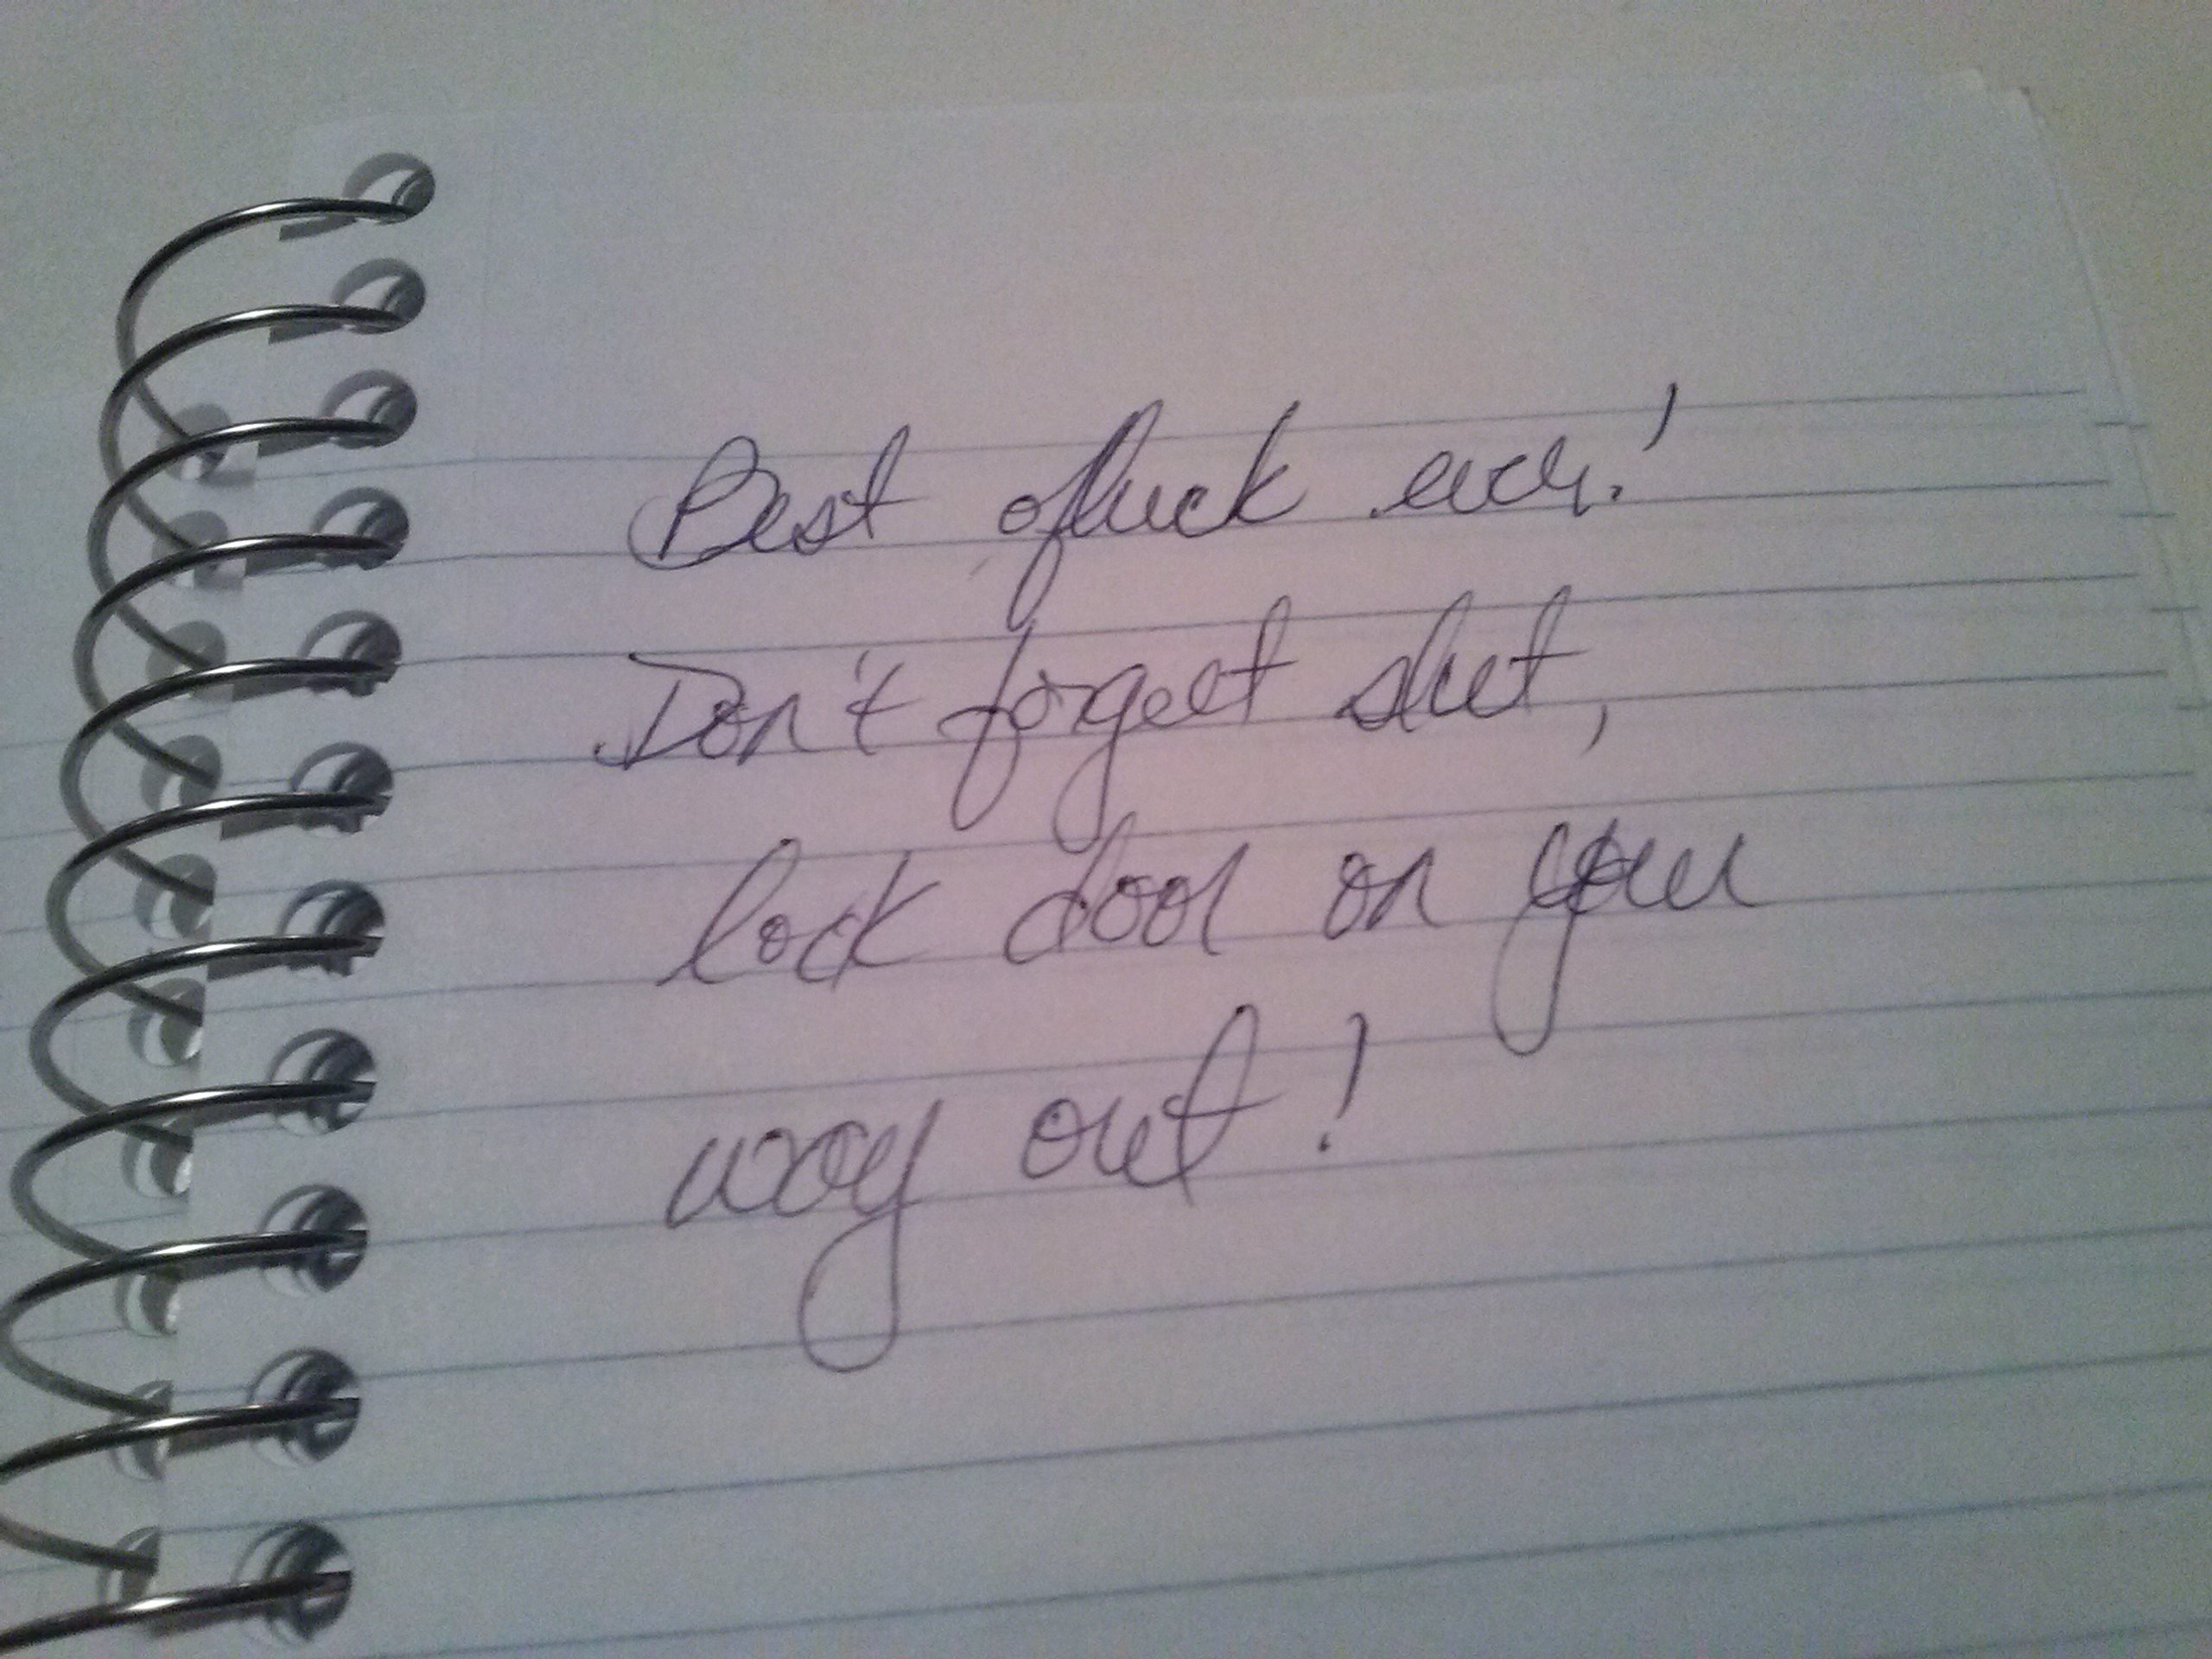 Best fluck ever!
Don't forget slut,
lock door on you
way out!